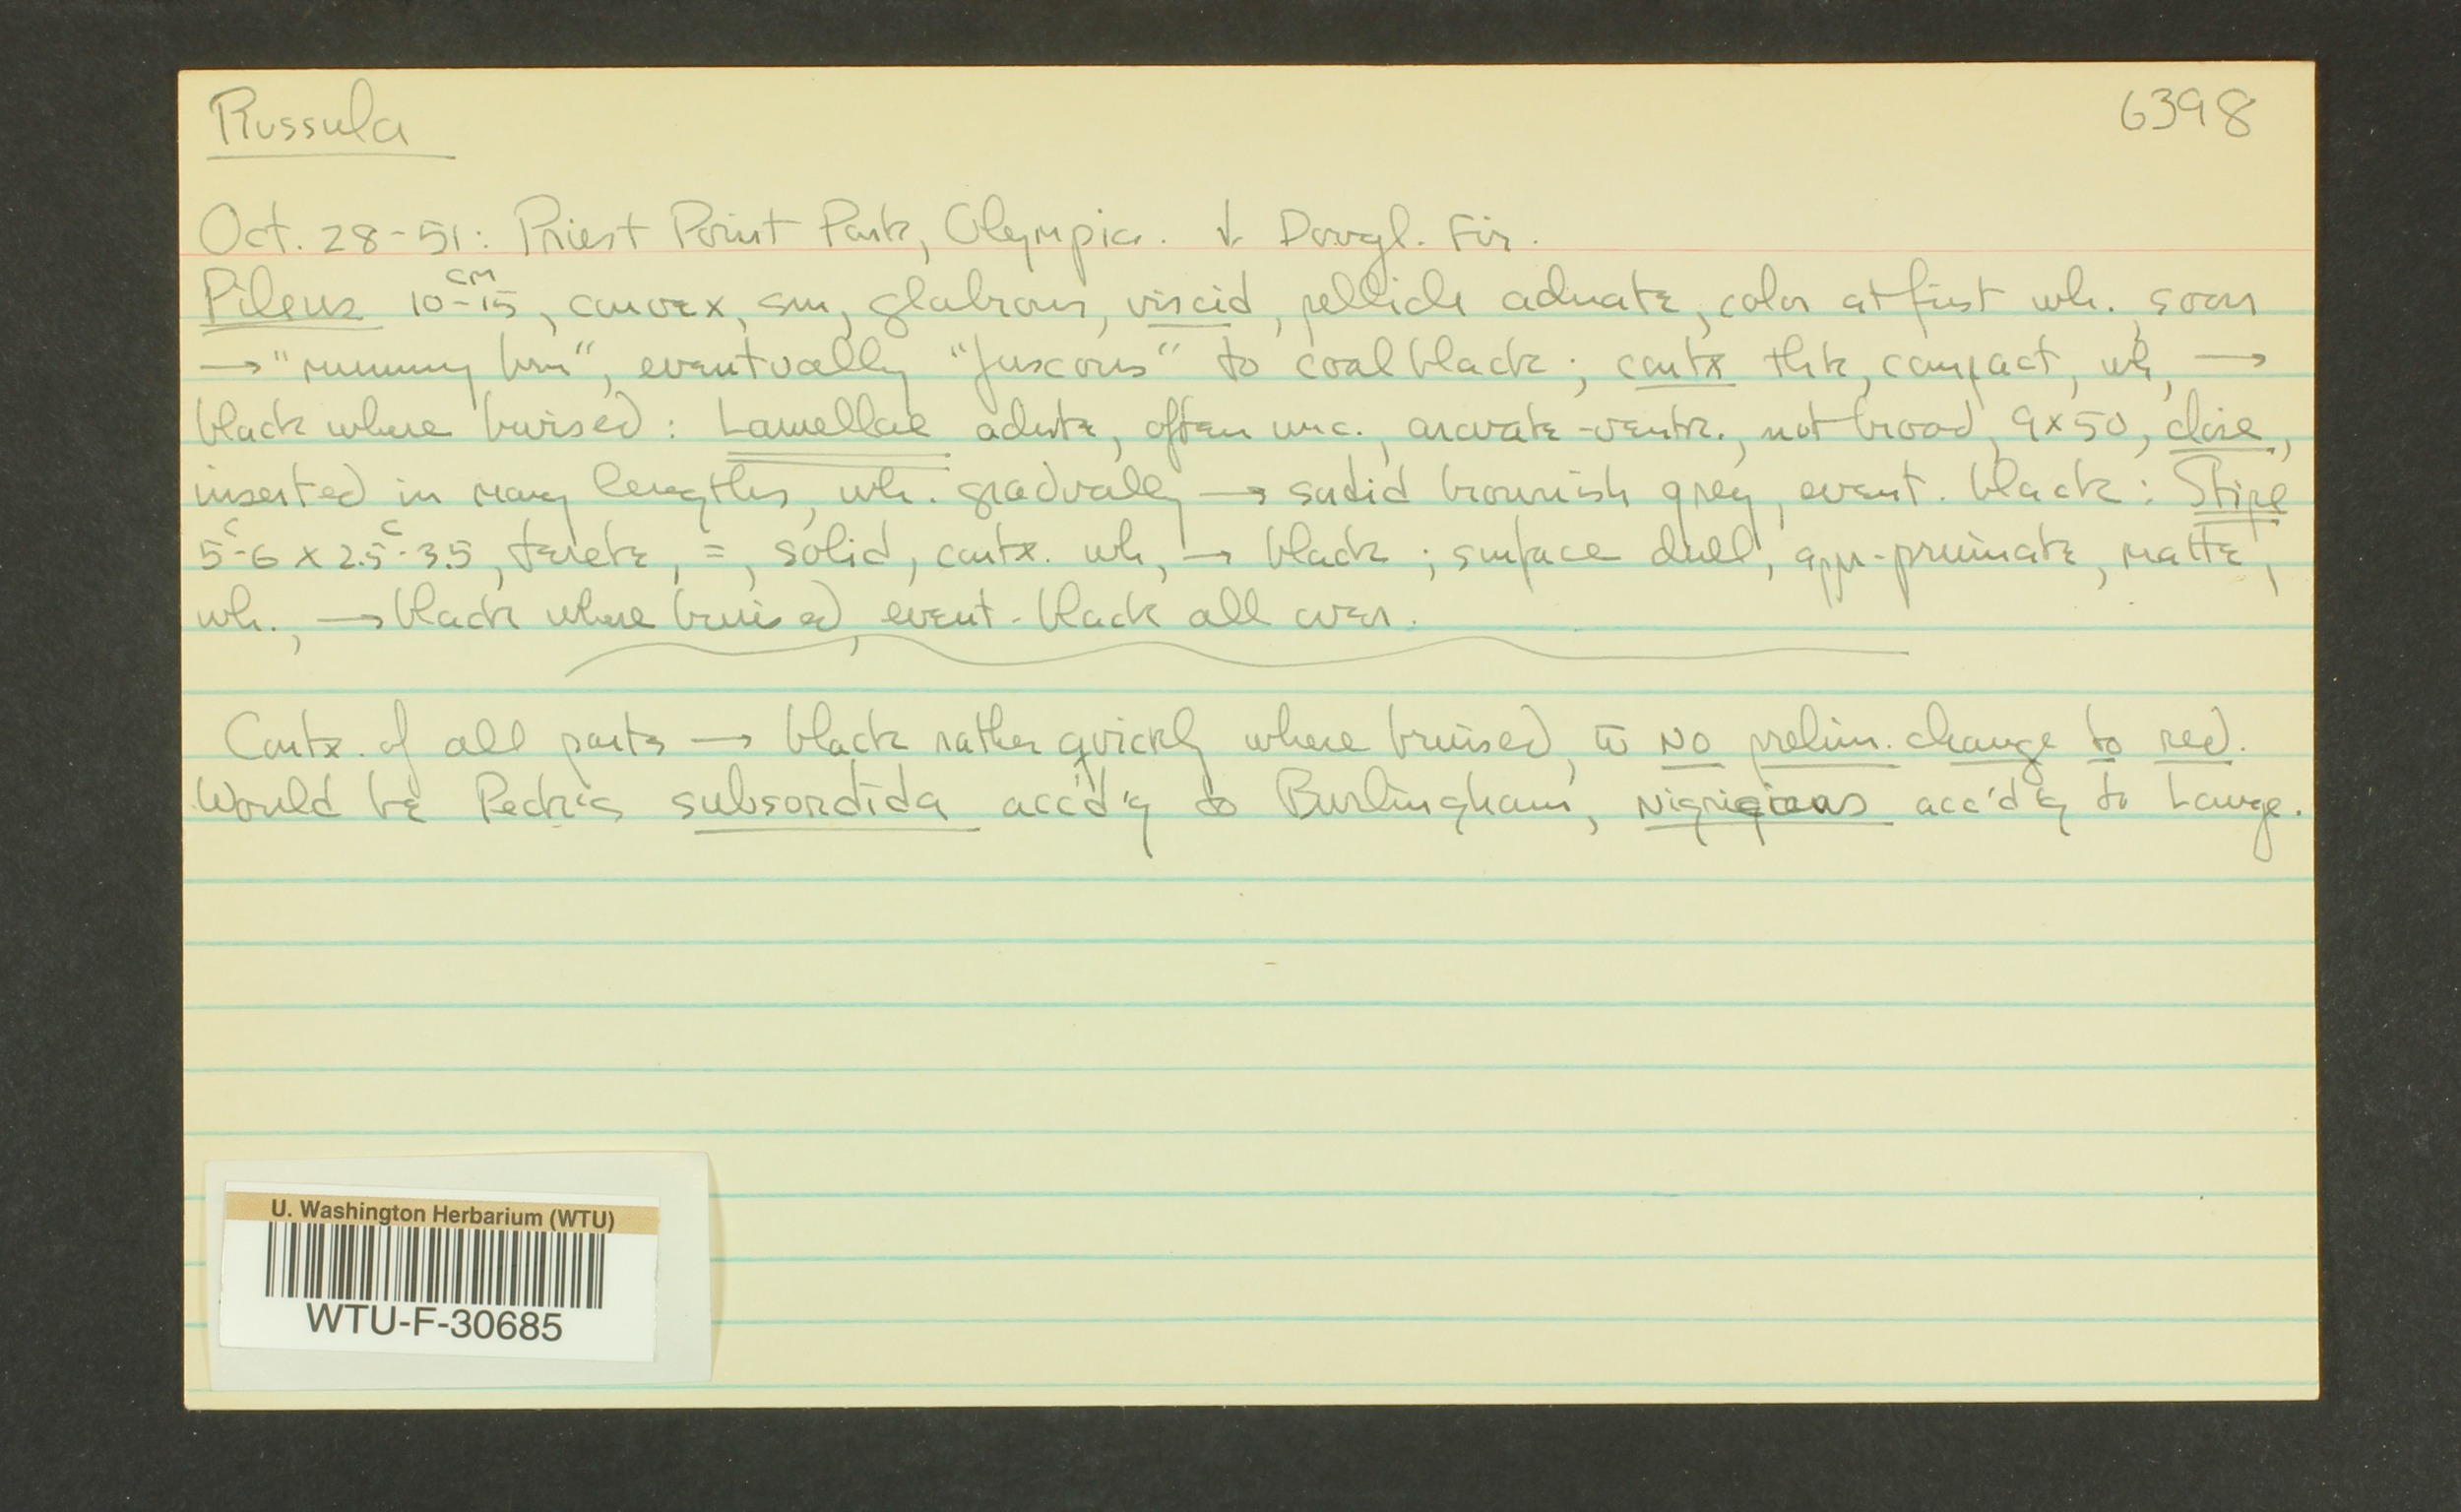 Russula
6398
Oct. 28-51: Priest Point Park, Olympia. ↓ Dougl. Fir.
Pileus 10-15 cm, convex, sm, glabrous, viscid, pellicle adnate, color at first wh., soon
→ "mummy brn", eventually "fuscous" to coal black; contx thk, compact, wh, →
black where bruised: Lamellae adnte, often unc., arcuate-ventr., not broad, 9x50, close,
inserted in many lengths, wh. gradually → sordid brownish grey, event. black: Stipe
5c-6 x 2.5c-3.5, terete, =, solid, contx. wh, → black; surface dull, appr-pruinate, matte,
wh., → black where bruised, event. black all over.
Contx. of all parts → black rather quickly where bruised, c̄ NO prelim. change to red.
Would be Peck's subsordida acc'd'g to Burlingham, acc'd'g to Lange.
U. Washington Herbarium (WTU)
WTU-F-30685